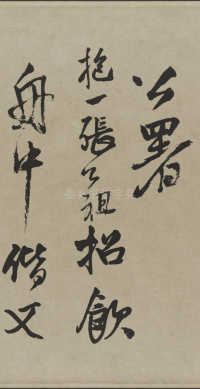 公署
抱一張公祖招飲
舟中偕又